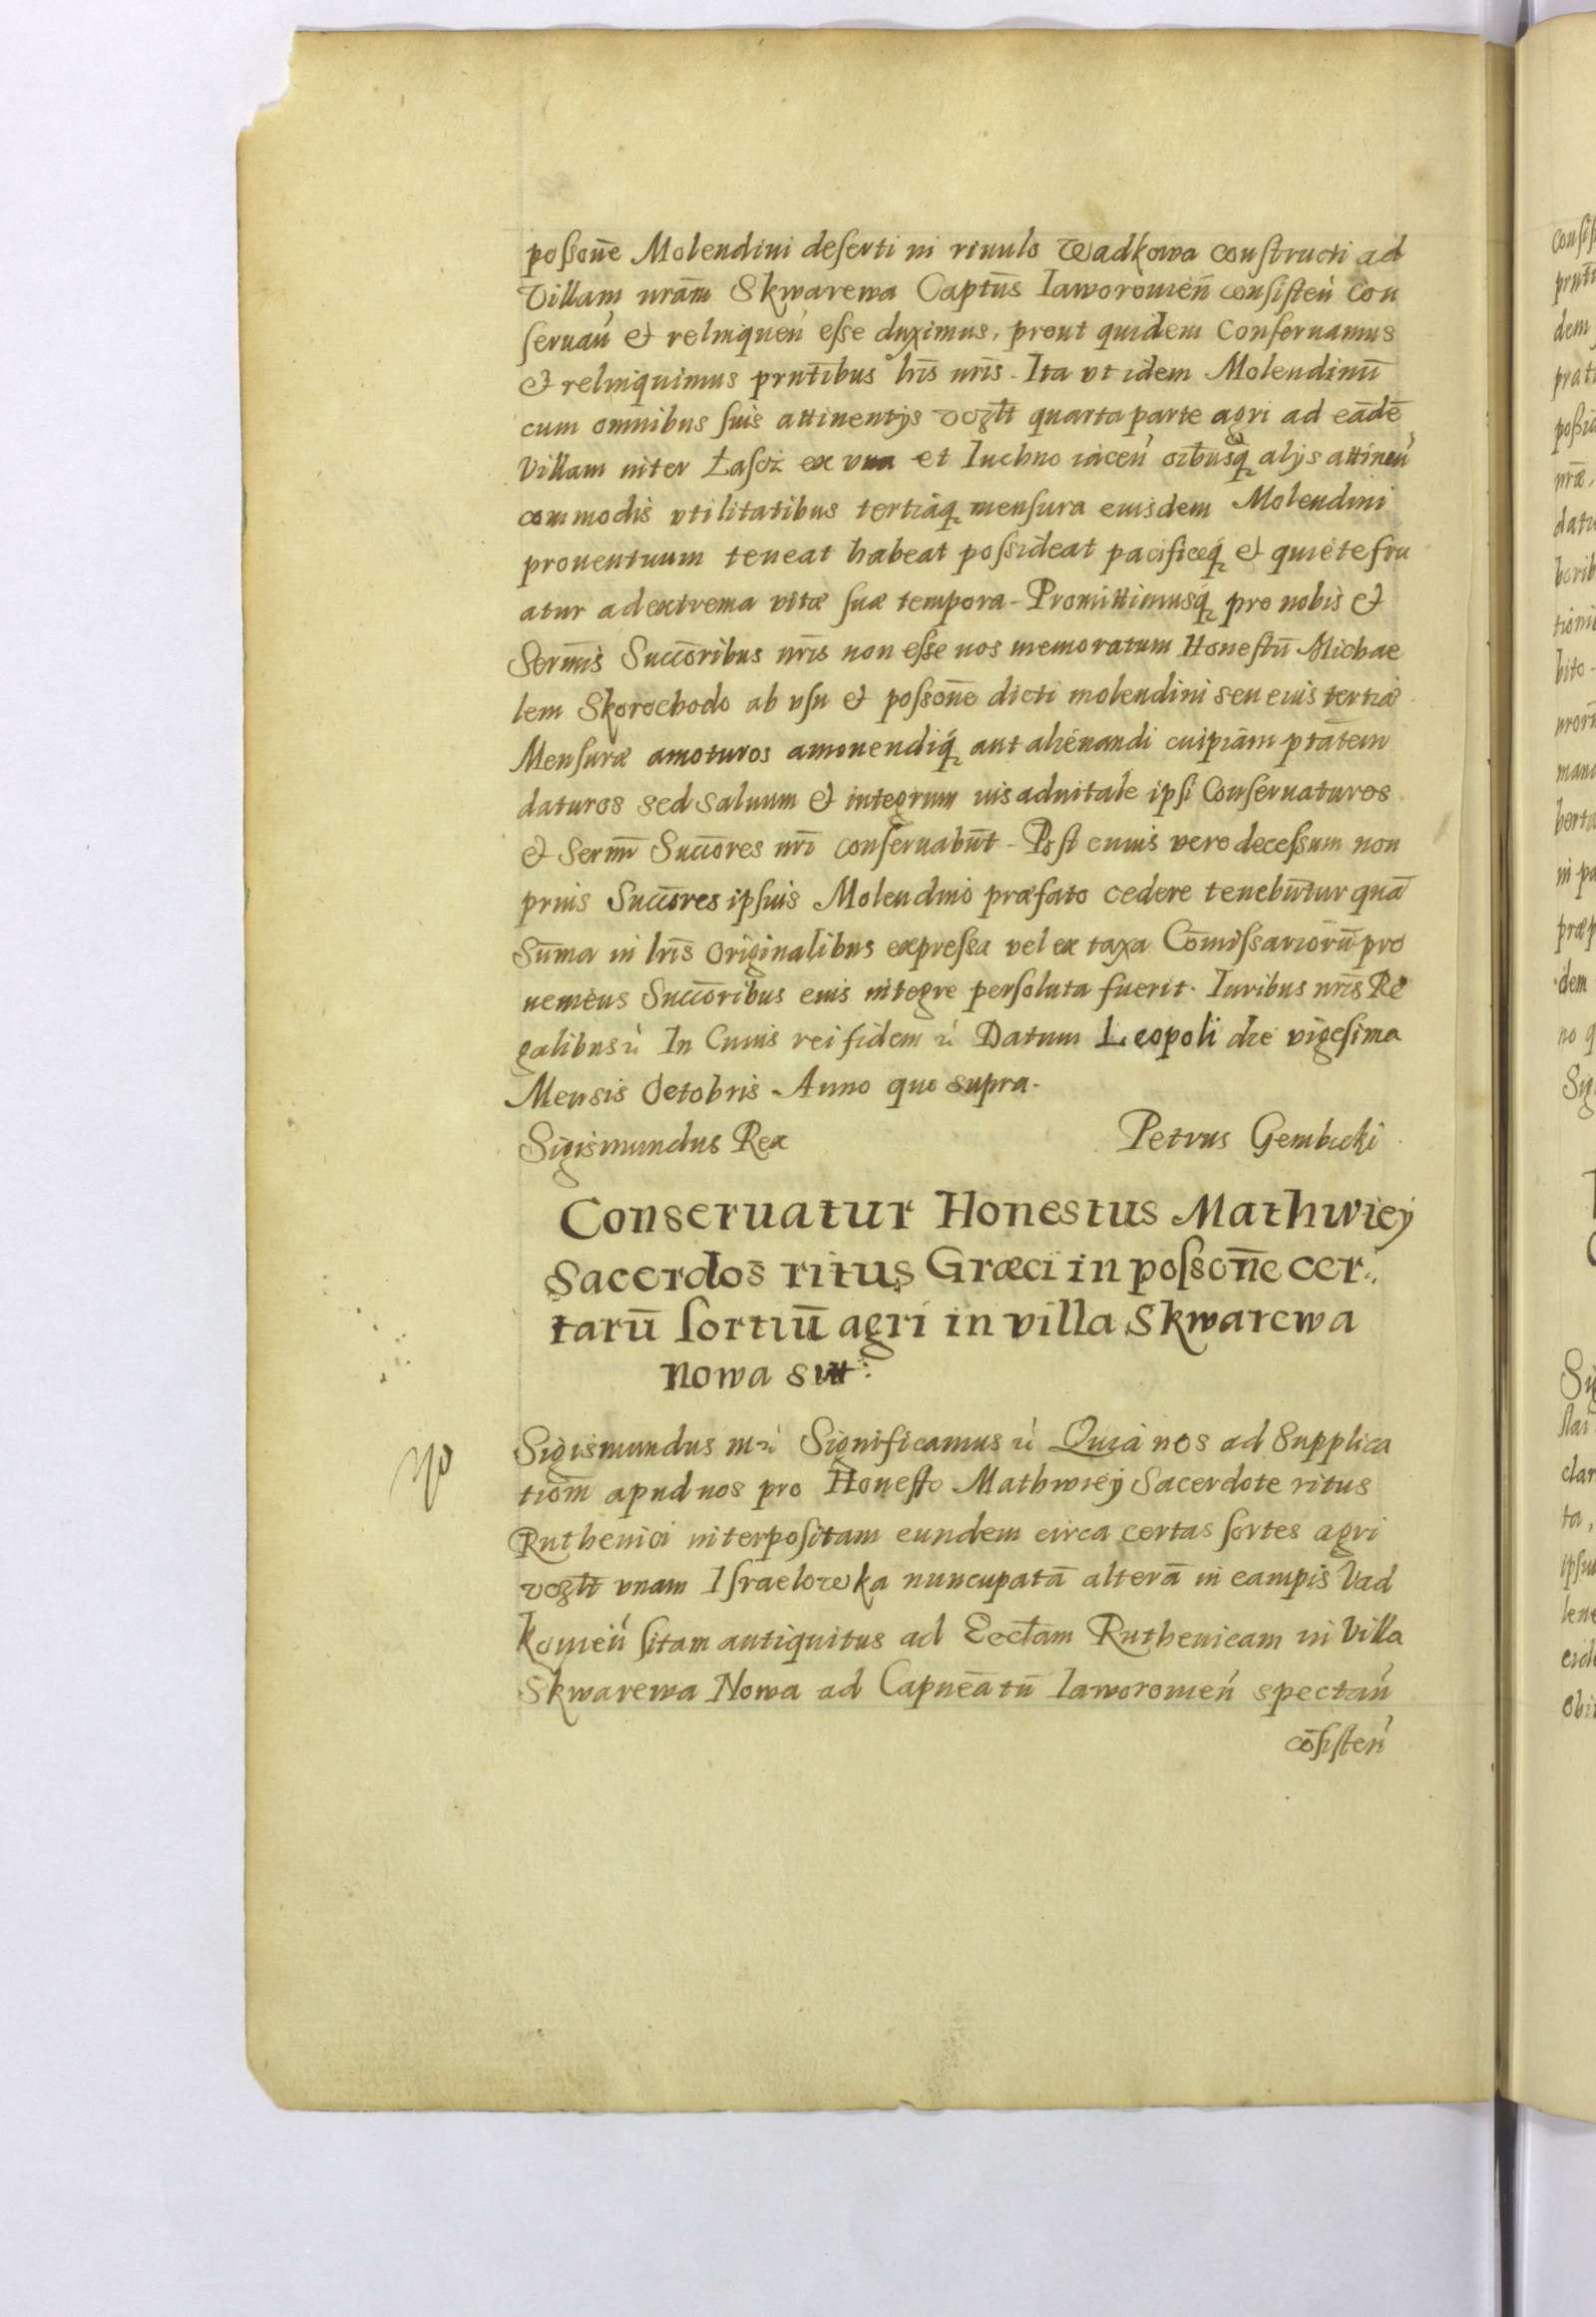 possone Molendini deserti in riuulo Wadkowa constructi ad
Villam nram Skwarewa Captus Iaworouien consisten Con
seruan et relinquen esse duximus, prout quidem Conseruamus
et relinquimus prntibus lris nris. Ita vt idem Molendinū
cum omnibus suis attinentijs vczlt quarta parte agri ad eādē
Villam inter Łasoz ex vna et Iuchno iacen oibusq alijs attinen
commodis vtilitatibus tertiaq mensura eiusdem Molendini
prouentuum teneat habeat possideat pacificeq et quiete fru
atur ad extrema vitæ suæ tempora. Promittimusq pro nobis et
Sermis Succoribus nris non esse nos memoratum Honestū Michae
lem Skorochodo ab vsu et possone dicti molendini seu eius tertiæ
Mensuræ amoturos amouendiq aut alienandi cuipiam ptatem
daturos sed saluum et integrum ius aduitale ipsi Conseruaturos
et Sermi Succores nri conseruabūt. Post cuius vero decessum non
prius Succores ipsius Molendino præfato cedere tenebūtur quā
Sūma in lris Originalibus expressa vel ex taxa Comissariorū pro
ueniens Succoribus eius integre persoluta fuerit. Iuribus nris Re
galibus ꝛ In Cuius rei fidem ꝛ Datum Leopoli die vigesima
Mensis Octobris Anno quo supra.
Sigismundus Rex Petrus Gembicki
Conseruatur Honestus Mathwiey
Sacerdos ritus Græci in possone cer
tarū sortiū agri in villa Skwarewa
Nowa sitt:
Sigismundus mꝛ Significamus ꝛ Quia nos ad Supplica
tiom apud nos pro Honesto Mathwiey Sacerdote ritus
Ruthenici interpositam eundem circa certas sortes agri
vczlt vnam Israelowka nuncupatā alterā in campis Vad
kouien sitam antiquitus ad Ecclam Ruthenicam in Villa
Skwarewa Nowa ad Capneatū Iaworouien spectan
cōsisten